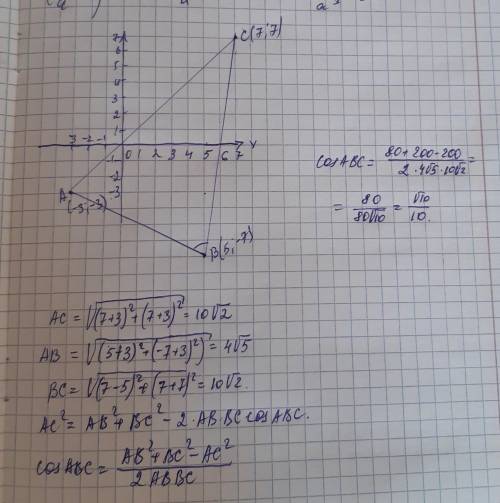 7
6
5
4
3
2
1
C(7;7)
-3 -2 -1 0 1 2 3 4 5 6 7
-1
-2
-3
A
(-3;-3)
B(5;-7)
cosABC = (80+200-200)/(2·4√5·10√2) =
= 80/(80√10) = √10/10.
AC = √((7+3)²+(7+3)²) = 10√2
AB = √((5+3)²+(-7+3)²) = 4√5
BC = √((7-5)²+(7+7)²) = 10√2.
AC² = AB²+BC²-2·AB·BC cosABC.
cosABC = (AB²+BC²-AC²)/(2ABBC)